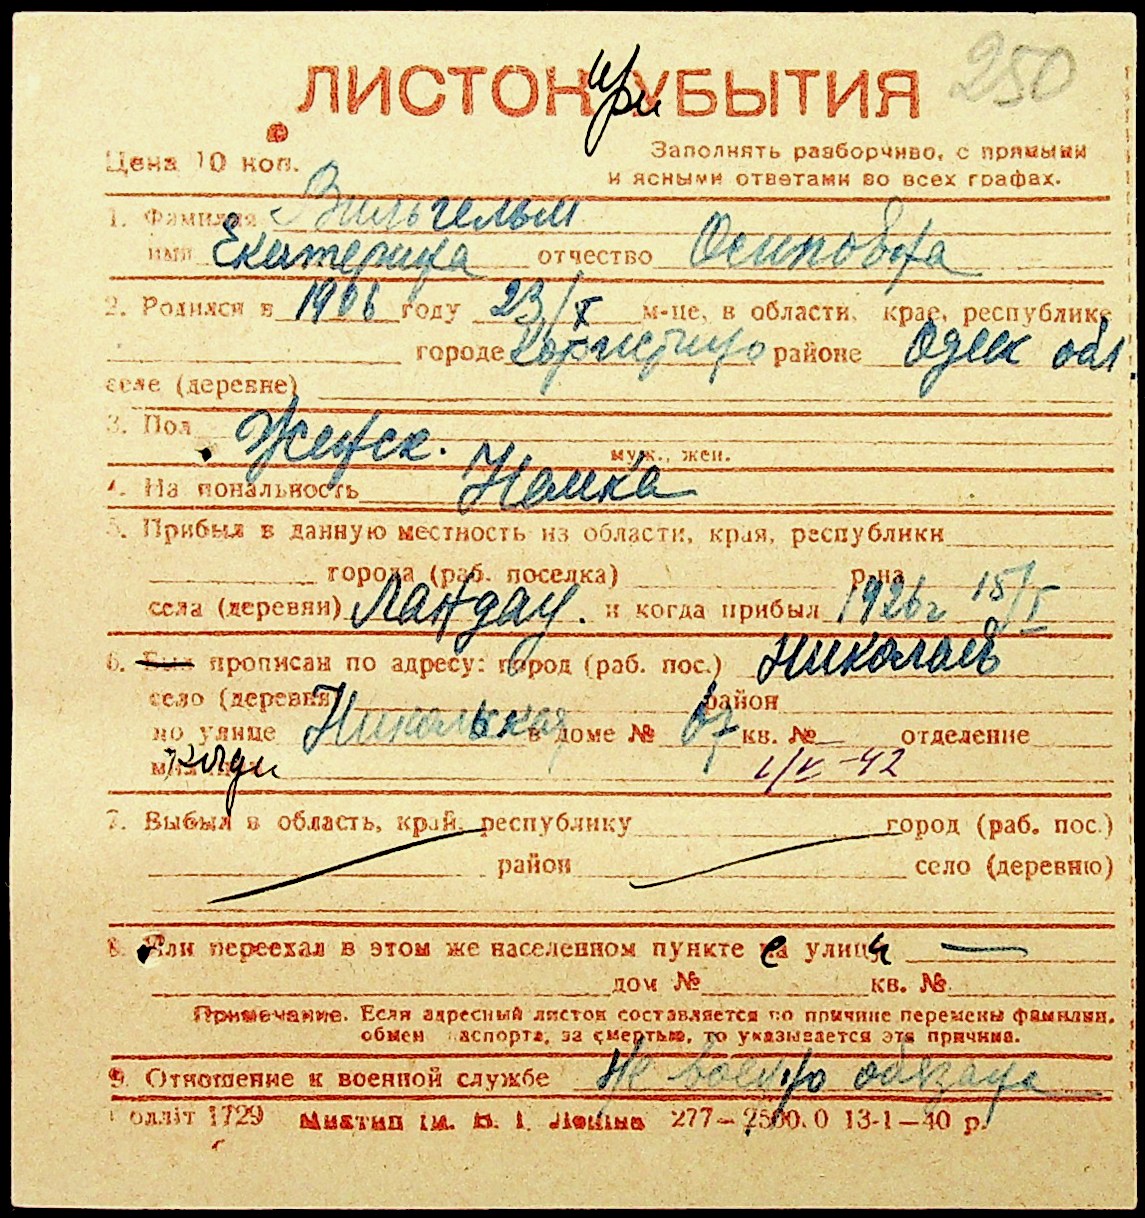 250
ЛИСТОК при УБЫТИЯ
Цена 10 коп.
Заполнять разборчиво, с прямыми
и ясными ответами во всех графах.
1. Фамилия Вильгельм
имя Екатерина отчество Осиповна
2. Родился в 1906 году 23/X м-це, в области, крае, республике
городе районе Одесс обл.
селе (деревне)
3. Пол Женск. муж., жен.
4. Национальность Немка
5. Прибыл в данную местность из области, края, республики
города (раб. поселка) р-на
села (деревни) Ландау. и когда прибыл 1926г 15/I
6. Был прописан по адресу: город (раб. пос.) Николаев
село (деревня) район
по улице Никольская в доме № 67 кв. № отделение
милиции когда 1/V-42
7. Выбыл в область, край, республику город (раб. пос.)
район село (деревню)
8. Или переехал в этом же населенном пункте с улицы —
дом № кв. №
Примечание. Если адресный листок составляется по причине перемены фамилии,
обмен паспорта, за смертью, то указывается эта причина.
9. Отношение к военной службе Не военно обязана
Обллiт 1729 Миктип iм. В. I. Ленiна 277—2500.0 13-1—40 р.